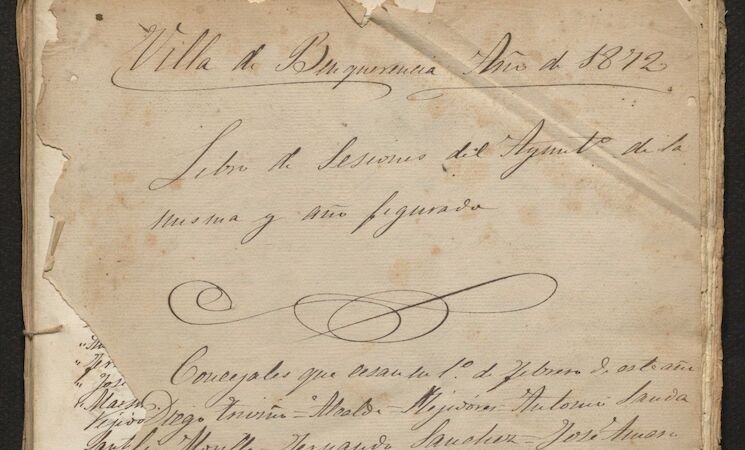 Villa de Benquerencia Año de 1872
Libro de Sesiones del Ayuntº de la
misma y año figurado
Concejales que cesan en 1º de Febrero de este año
Diego Triviño = Alcalde = Rejidores = Antonio
Morillo = Fernando Sanchez = José